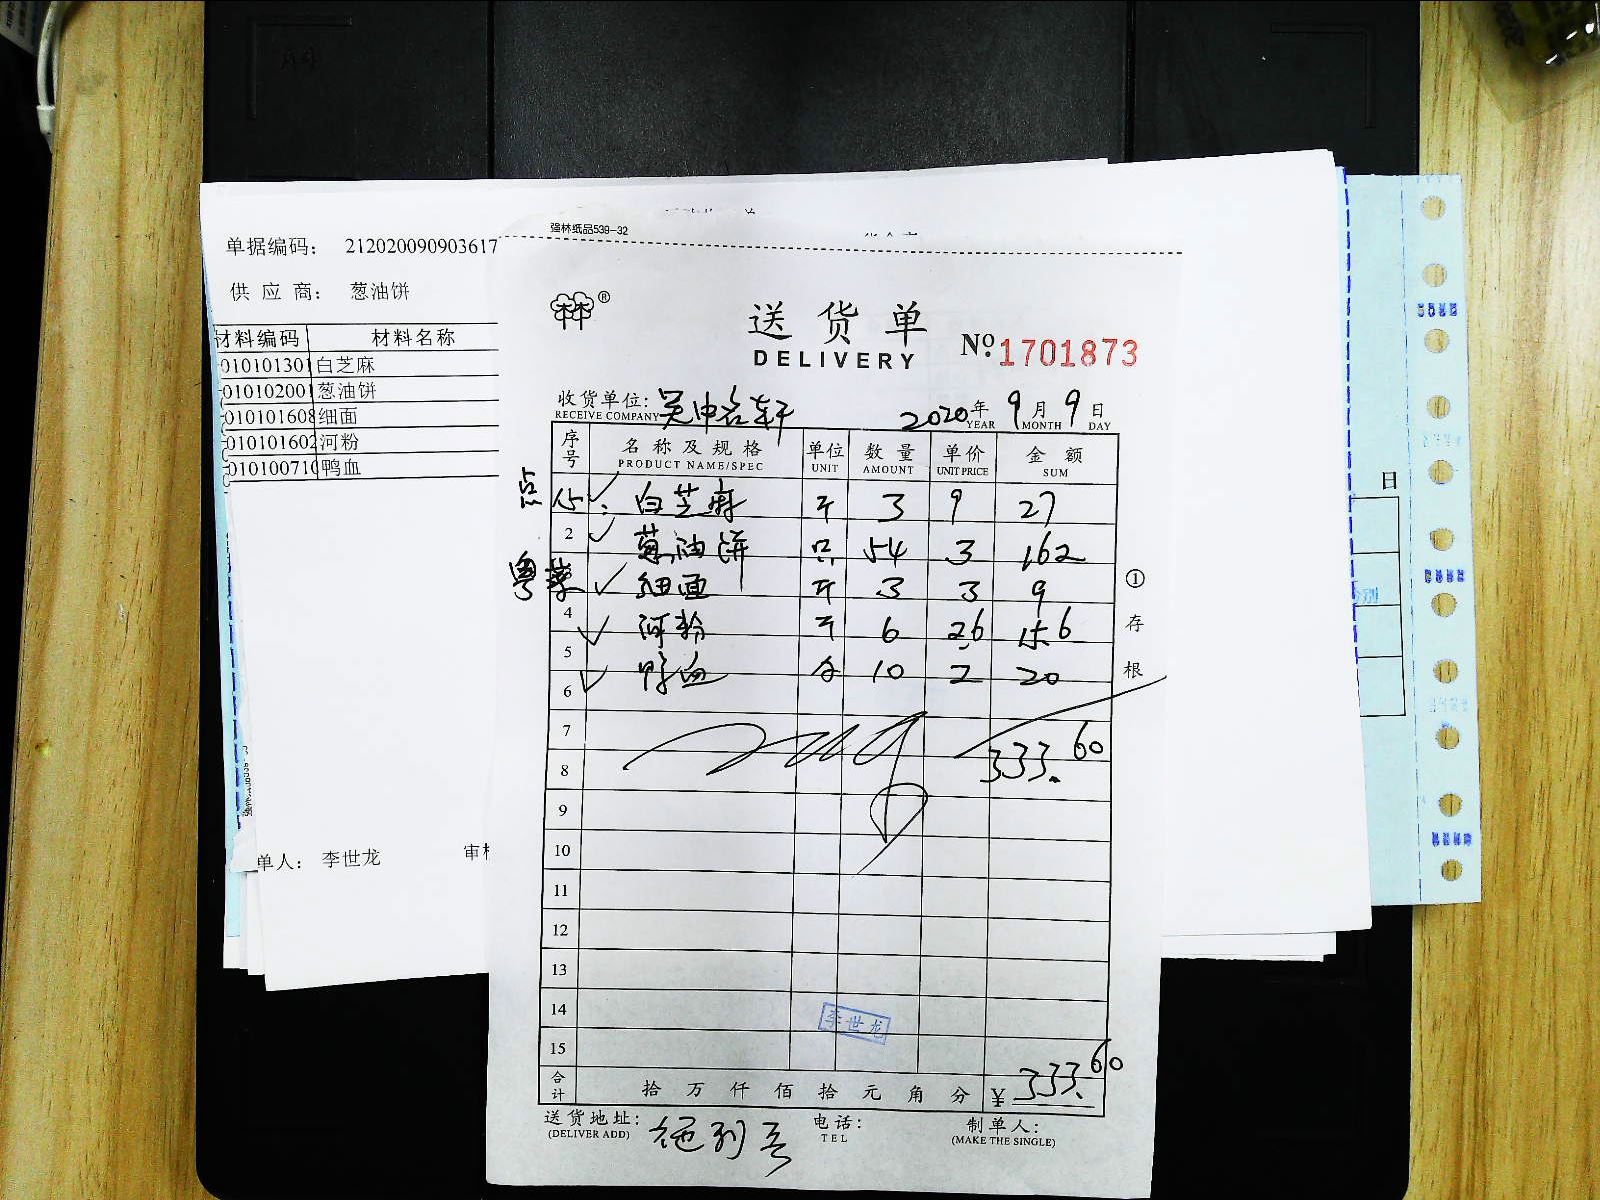 单据编码： 212020090903617
供 应 商： 葱油饼
材料编码 材料名称
010101301 白芝麻
010102001 葱油饼
010101608 细面
010101602 河粉
010100710 鸭血
单人： 李世龙 审核
强林纸品539-32
林林®
送货单
DELIVERY
No. 1701873
收货单位： 吴中名轩
RECEIVE COMPANY
2020年 9月 9日
YEAR MONTH DAY
序号 名称及规格 单位 数量 单价 金额
PRODUCT NAME/SPEC UNIT AMOUNT UNIT PRICE SUM
点心： 白芝麻 斤 3 9 27
2 葱油饼 只 54 3 162
粤菜 细面 斤 3 3 9
4 河粉 斤 6 2.6 15.6
5 鸭血 分 10 2 20
6
7 333.60
8
9
10
11
12
13
14
李世龙
15
合计 拾 万 仟 佰 拾 元 角 分 ¥ 333.60
送货地址： 电话： 制单人：
(DELIVER ADD) TEL (MAKE THE SINGLE)
①存根
日